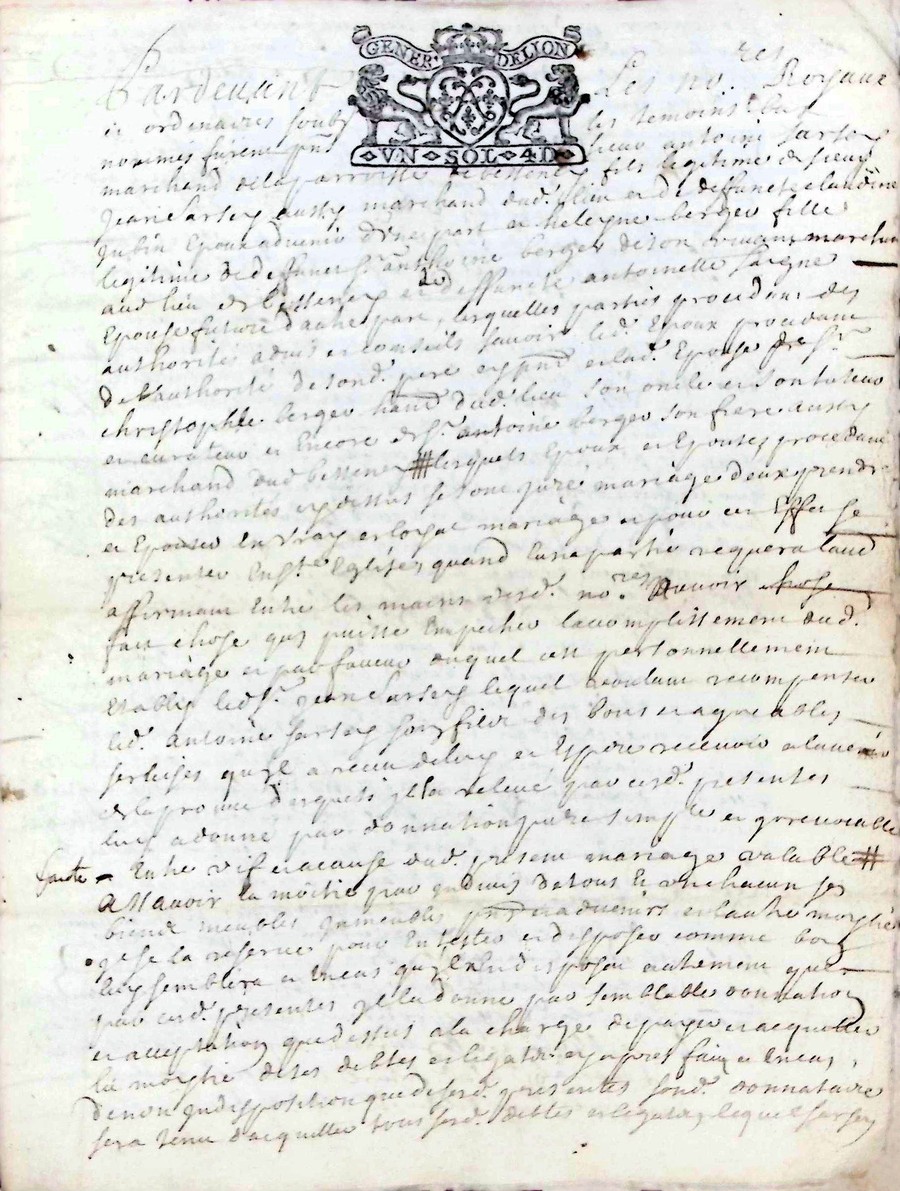 GENER DELION
VN SOL 4D
Pardevant Les no.res Royaux
et ordinaires soubs les temoins bas
nommes furent pnt sieur antoine Sarsey
marchand de la parroisse de bessenay fils legitime de sieur
Jean Sarsey aussy marchand dud. lieu et de deffuncte claudine
Jubin Epoux advenir d'une part et heleyne berger fille
legitime de deffunct Sr. anthoine berger de son vivant marchand
aud lieu de bessenay et de deffuncte antoinette
Epouse future d'autre part, lesquelles parties procedant des
authorités advis et conseils savoir led. Epoux procedant
de l'authorité de sond. pere cy pnt et lad. Epouse de Sr.
christophle berger hant dud. lieu son oncle et son tuteur
et curateur et Encore de Sr. antoine berger son frere aussy
marchand dud bessenay # lesquels Epoux et Epouse procedant
des authorités cy dessus se sont juré mariage deux prendre
et Epouser En vray et loyal mariage et pour cet Effet se
presenter En Ste Eglise quand l'une partie requera l'autre
affirmant Entre les mains desd. no.res N'avoir chose
fait chose quy puisse Empecher lacomplissement dud.
mariage et par faveur duquel cest personnellement
Etably led. Sr. Jean Sarsey lequel voulant recompenser
led. Antoine Sarsey son fils des bons et agreables
services qu'yl a receu de luy et Espere recevoir a l'avenir
de la preuve desquels yl l'a relevé par cesd. presentes
luy a donné par donnation pure simple et yrrevocable
Entre vif et a cause dud. present mariage valable #
Assavoir la moitié par yndivis de tous et un chacun ses
biens meubles ymeubles pnts et advenirs et l'autre moytié
yl se la reserve pour En tester et disposer comme bon
luy semblera et En cas qu'yl n'En disposat autrement que
par cesd. presentes yl la donne par semblable donnation
et acceptation que dessus a la charge de payer et acquitter
la moytié de ses debtes et legats cy apres fait et En cas
de non yndisposition que desd. presentes sond. donnataire
sera tenu d'acquitter tous sesd. debtes et legats lequel Sarsey